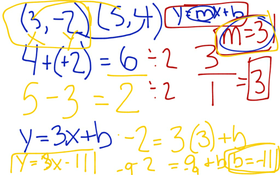 (3, -2) (5, 4) y=mx+b
m=3
4+(+2) = 6 ÷2 3
5-3 = 2 ÷2 1 = 3
y=3x+b -2 = 3(3)+b
y=3x-11 -9 -2 = 9+b b=-11